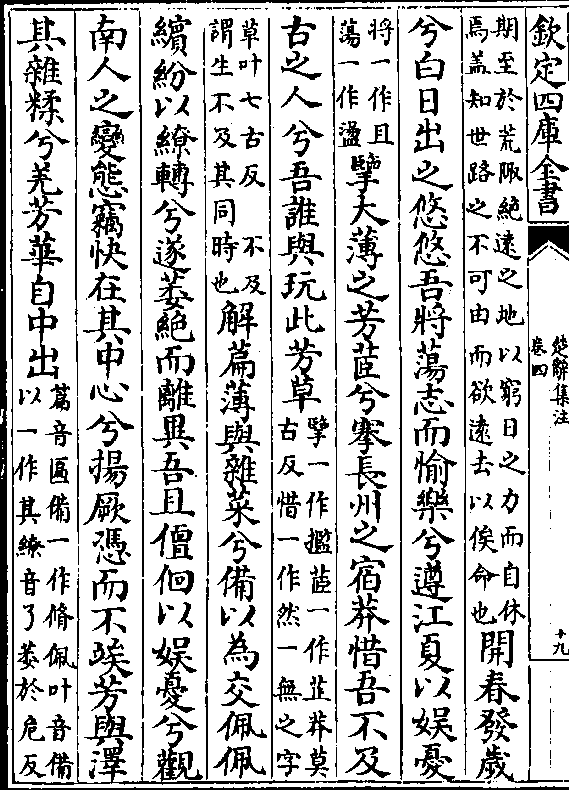 欽定四庫全書
楚辭集注
卷四
十九
期至於荒陬絶遠之地以窮日之力而自休
焉盖知世路之不可由而欲遠去以俟命也
開春發歲
兮白日出之悠悠吾將蕩志而愉樂兮遵江夏以娱憂
將一作且
蕩一作盪
擥大薄之芳茝兮搴長州之宿莽惜吾不及
古之人兮吾誰與玩此芳草
擥一作擥茝一作芷莽莫
古反惜一作然一無之字
草叶七古反 不及
謂生不及其同時也
解萹薄與雜菜兮備以為交佩佩
繽紛以繚轉兮遂萎絶而離異吾且儃佪以娱憂兮觀
南人之變態竊快在其中心兮揚厥憑而不竢芳與澤
其雜糅兮羌芳華自中出
萹音匾備一作脩佩叶音備
以一作其繚音了萎於危反